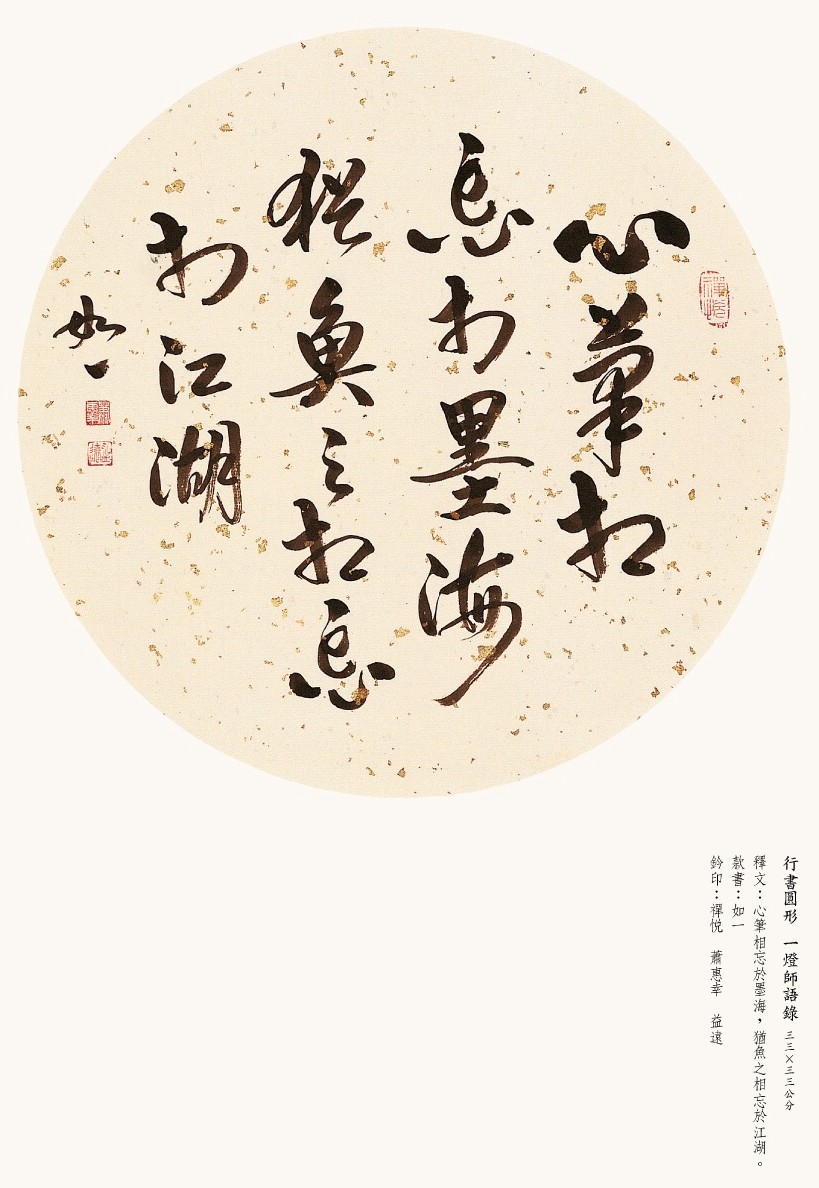 心筆相
忘於墨海
猶魚之相忘
於江湖
如一
禪悅
行書圓形 一燈師語錄 三三×三三公分
釋文：心筆相忘於墨海，猶魚之相忘於江湖。
款書：如一
鈐印：禪悅 蕭惠幸 益遠